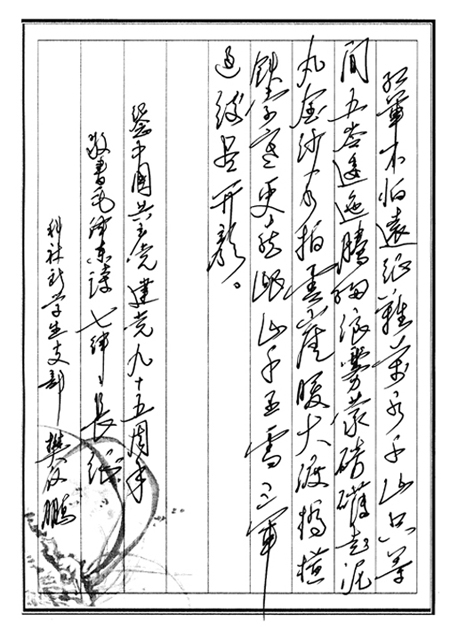 红军不怕遠征難萬水千山只等
闲五岭逶迤腾细浪雾蒙磅礴走泥
丸金沙水拍雲崖暖大渡橋横
铁索寒更喜岷山千里雪三军
过後尽开颜。
中國共产党建党九十五周年
敬書毛泽东詩七律·長征
科社学生支部 樊俊鹏